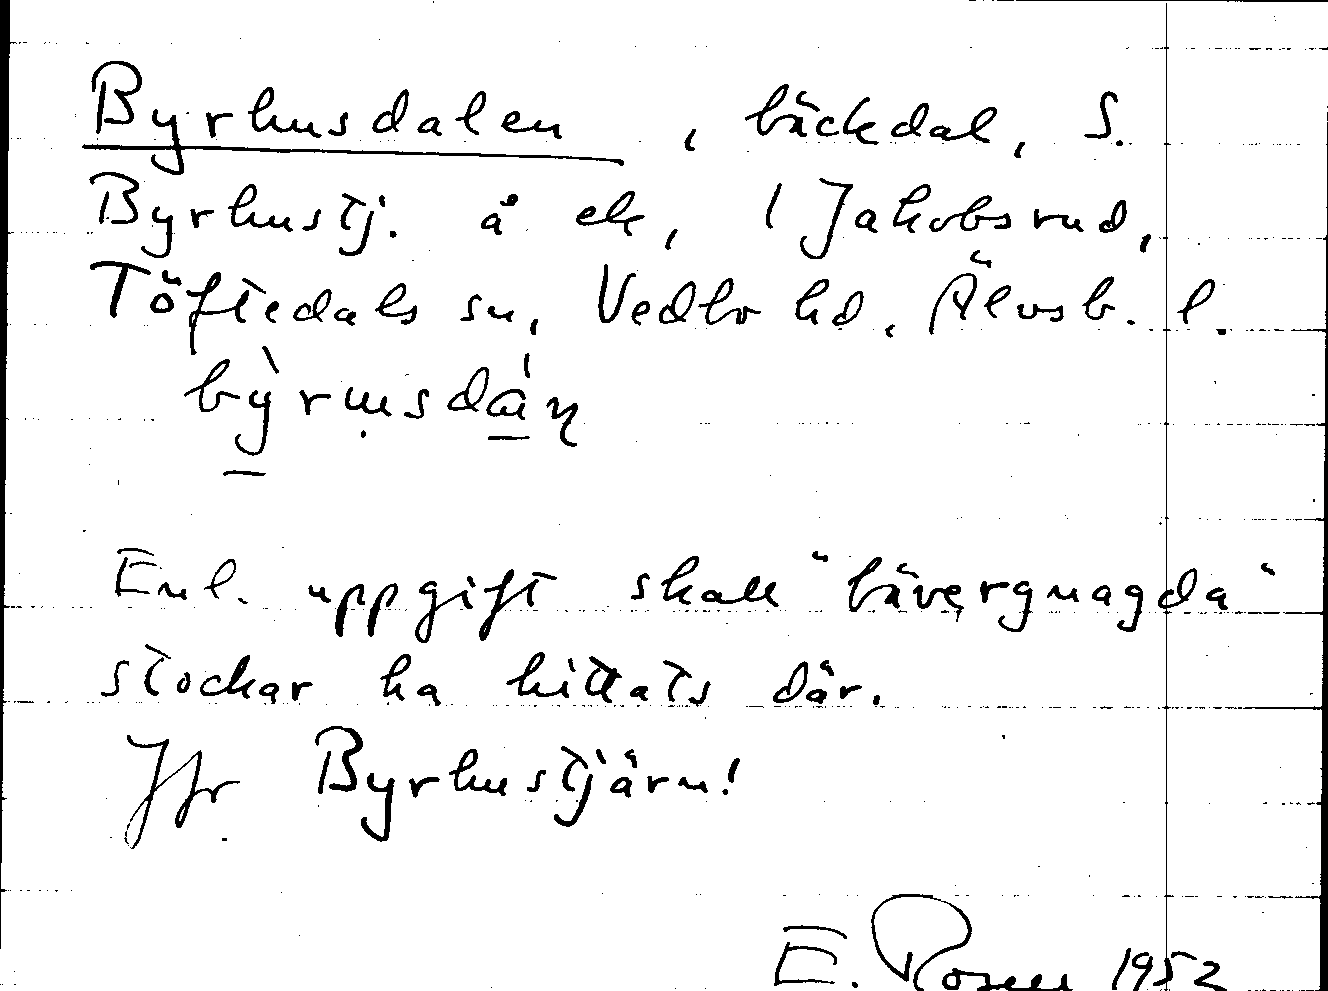 Byrhusdalen, bäckdal, S.
Byrhustj. å ek, 1 Jakobsrud,
Töftedals sn, Vedbo hd, Älvsb. l.
bỳrusdán
Enl. uppgift skall "bävergnagda"
stockar ha hittats där.
Jfr Byrhustjärn!
E. Rosell 1952